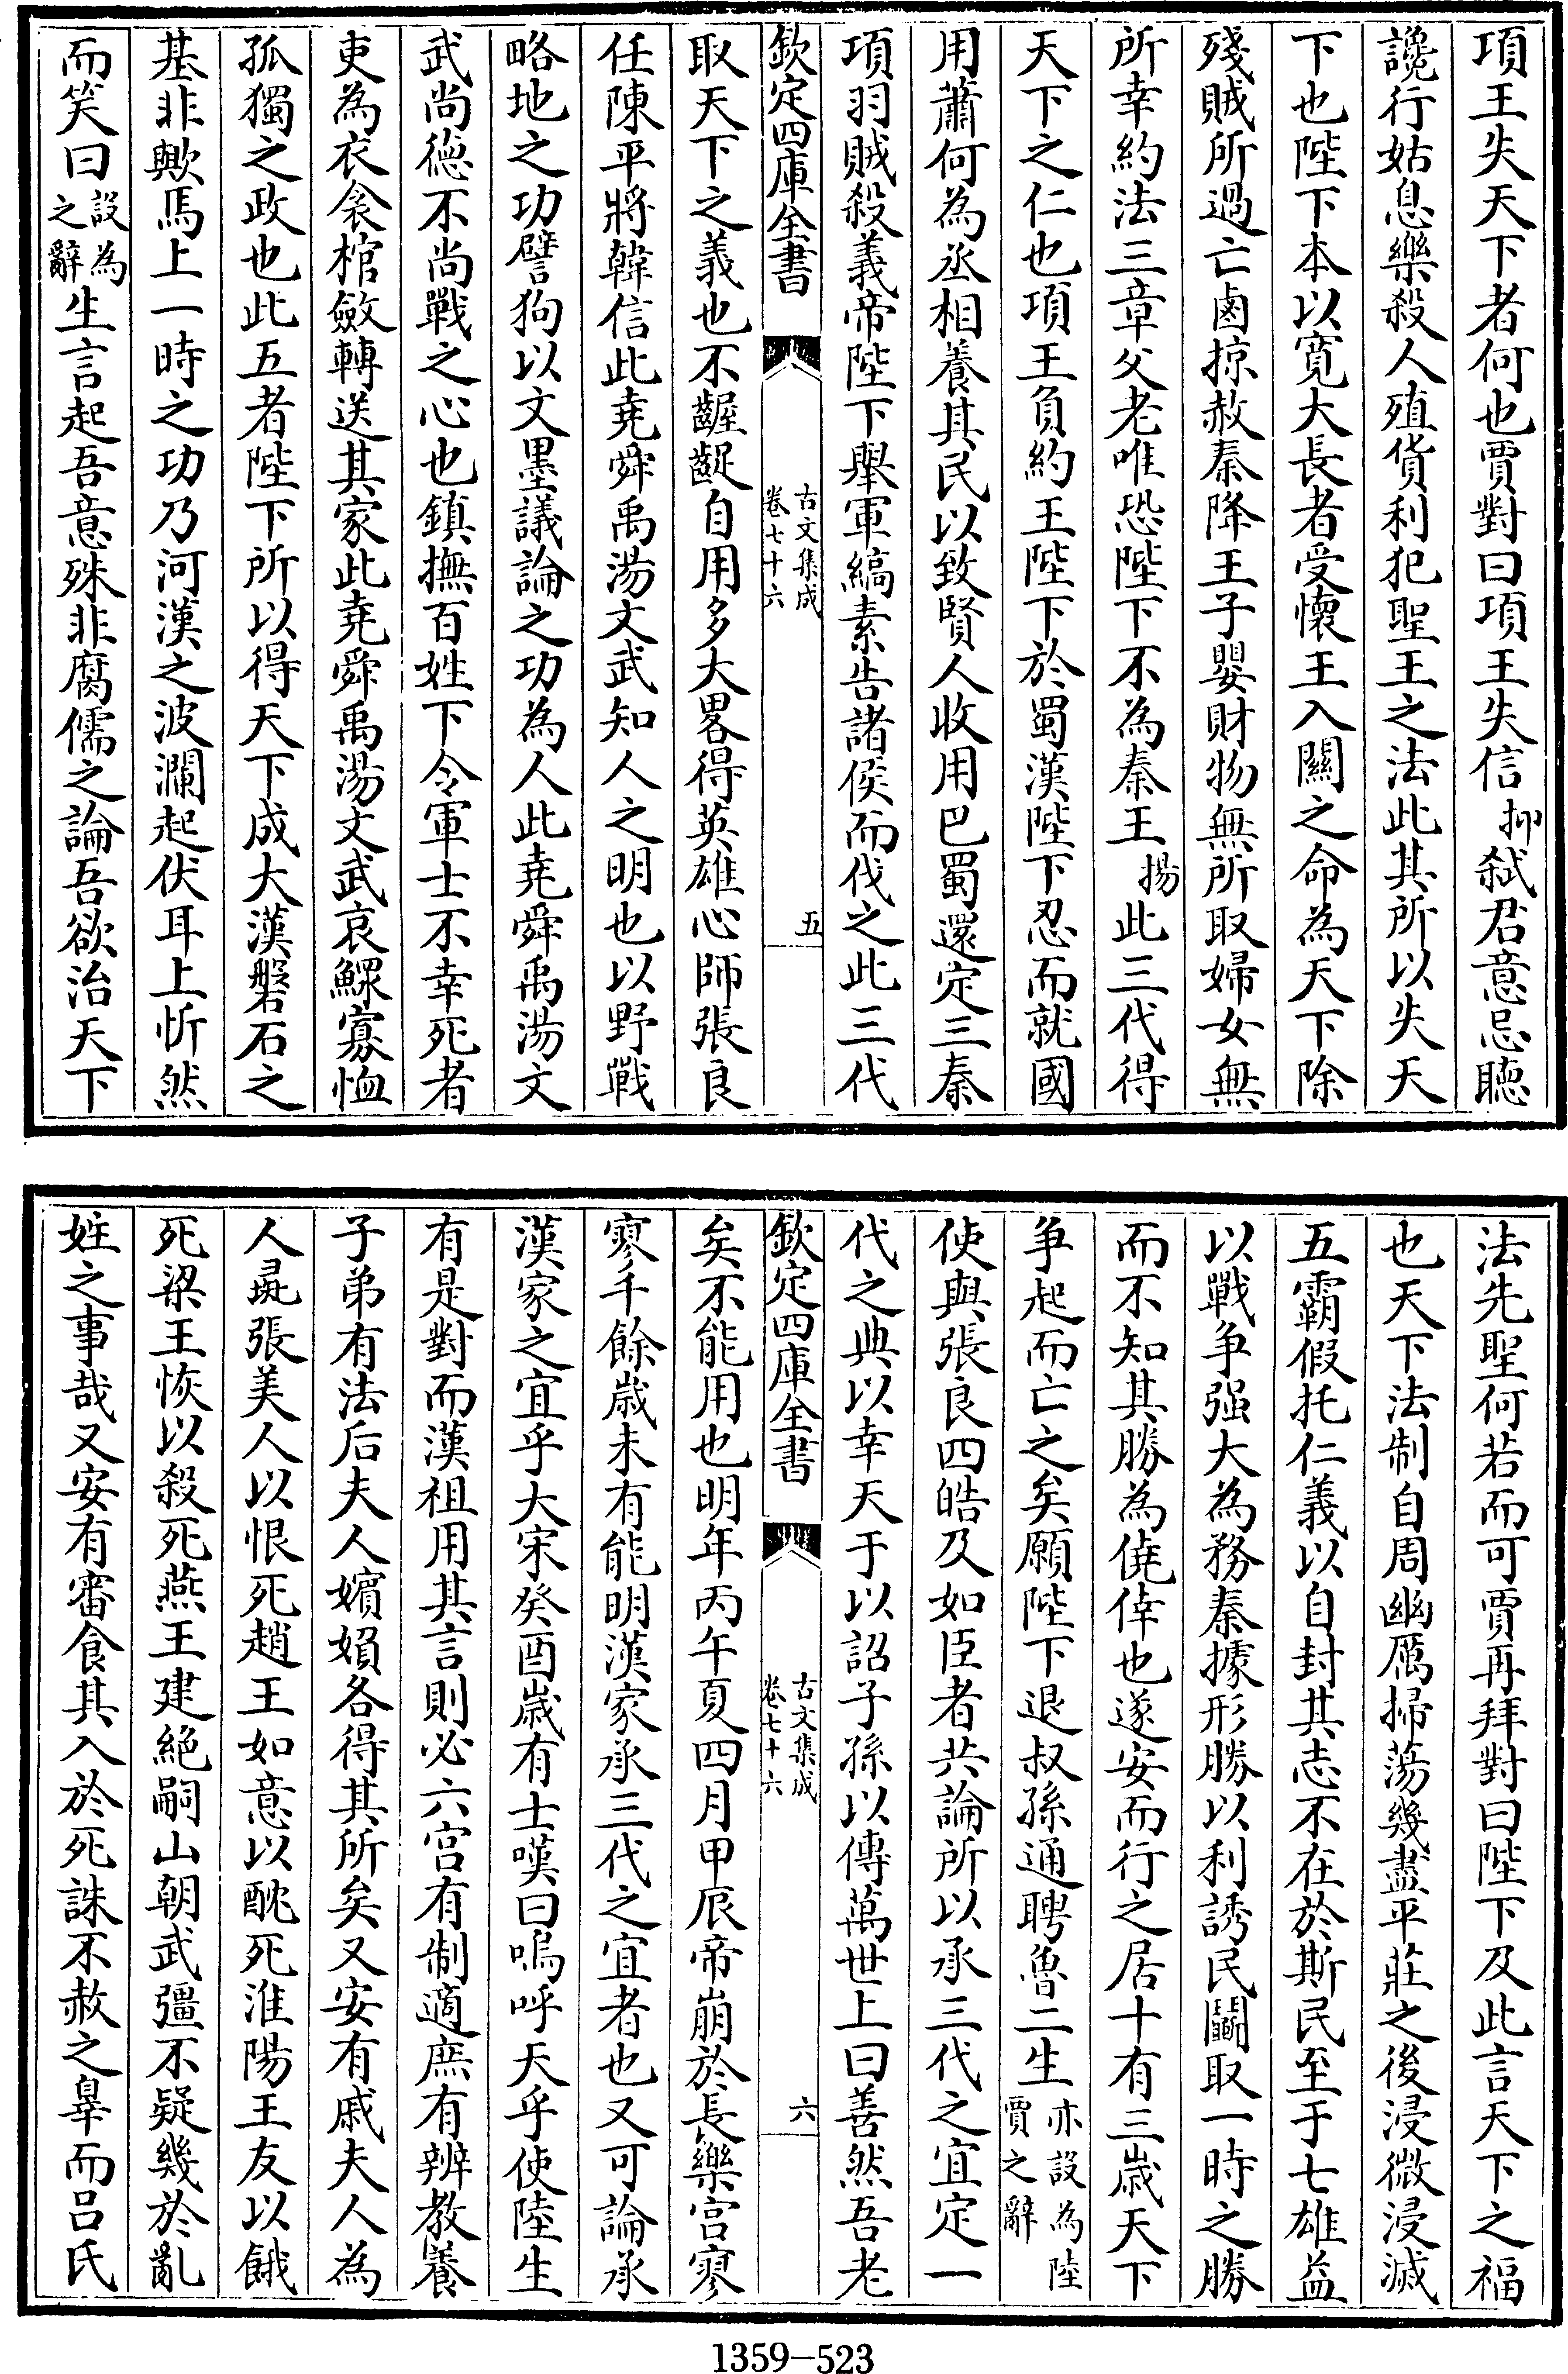 項王失天下者何也賈對曰項王失信抑弑君意忌聽
讒行姑息樂殺人殖貨利犯聖王之法此其所以失天
下也陛下本以寛大長者受懷王入關之命為天下除
殘賊所過亡鹵掠赦秦降王子嬰財物無所取婦女無
所幸約法三章父老唯恐陛下不為秦王揚此三代得
天下之仁也項王負約王陛下於蜀漢陛下忍而就國
用蕭何為丞相養其民以致賢人收用巴蜀還定三秦
項羽賊殺義帝陛下舉軍縞素告諸侯而伐之此三代
欽定四庫全書
古文集成
卷七十六
五
取天下之義也不齷齪自用多大畧得英雄心師張良
任陳平將韓信此堯舜禹湯文武知人之明也以野戰
略地之功譬狗以文墨議論之功為人此堯舜禹湯文
武尚德不尚戰之心也鎮撫百姓下令軍士不幸死者
吏為衣衾棺斂轉送其家此堯舜禹湯文武哀鰥寡恤
孤獨之政也此五者陛下所以得天下成大漢磐石之
基非歟馬上一時之功乃河漢之波瀾起伏耳上忻然
而笑曰設為之辭生言起吾意殊非腐儒之論吾欲治天下
法先聖何若而可賈再拜對曰陛下及此言天下之福
也天下法制自周幽厲掃蕩幾盡平莊之後浸微浸滅
五霸假托仁義以自封其志不在於斯民至于七雄益
以戰争强大為務秦據形勝以利誘民鬬取一時之勝
而不知其勝為僥倖也遂安而行之居十有三歳天下
争起而亡之矣願陛下退叔孫通聘魯二生亦設為陸賈之辭
使與張良四皓及如臣者共論所以承三代之宜定一
代之典以幸天下以詔子孫以傳萬世上曰善然吾老
欽定四庫全書
古文集成
卷七十六
六
矣不能用也明年丙午夏四月甲辰帝崩於長樂宫寥
寥千餘歳未有能明漢家承三代之宜者也又可論承
漢家之宜乎大宋癸酉歳有士嘆曰嗚呼天乎使陸生
有是對而漢祖用其言則必六宫有制適庶有辨教養
子弟有法后夫人嬪嬪各得其所矣又安有戚夫人為
人彘張美人以恨死趙王如意以酖死淮陽王友以餓
死梁王恢以殺死燕王建絶嗣山朝武彊不疑幾於亂
姓之事哉又安有審食其入於死誅不赦之辠而吕氏
1359-523